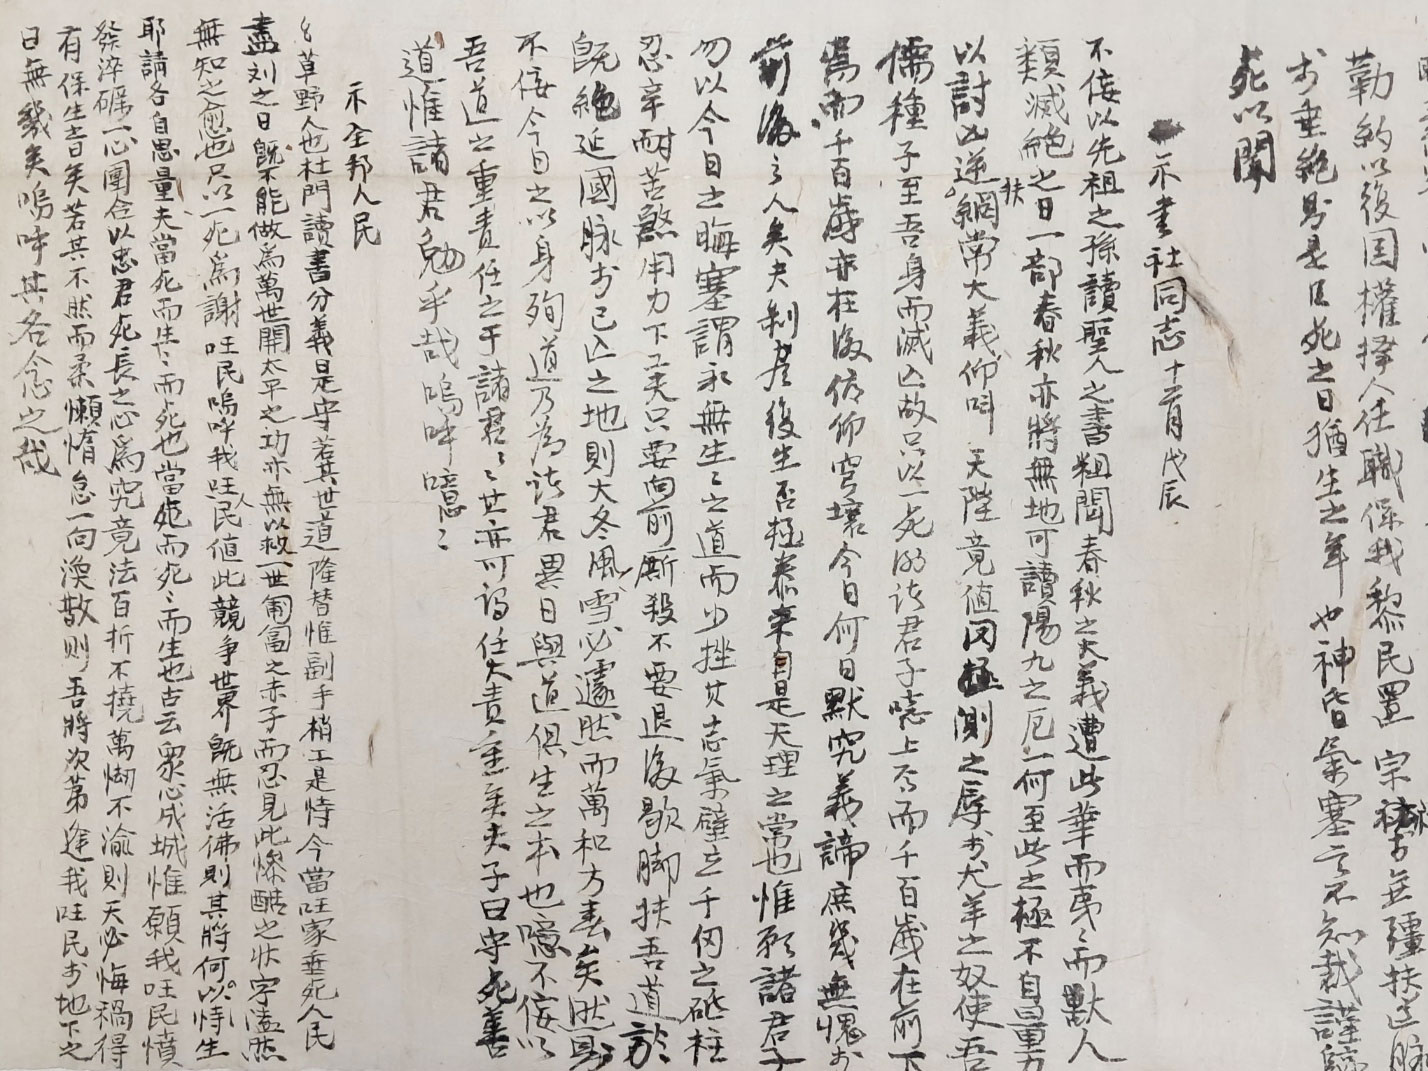 勒約以復国權擇人任職保我黎民置 宗社於無疆扶
於垂絶則是臣死之日猶生之年也神昏氣塞言不知裁謹
死以聞
示書社同志 十二月戊辰
不侫以先祖之孫讀聖人之書粗聞春秋之大義遭此華而夷夷而獸人
類滅絶之日一部春秋亦將無地可讀陽九之厄一何至此之極不自量力
以討凶逆扶綱常大義仰叫 天陛竟値罔測之辱於犬羊之奴使吾
儒種子至吾身而滅亡故只以一死的諸君子噫上而千百歲在前下
爲而千百歲亦在後俯仰穹壤今日何日默究義諦庶幾無愧於
前後之人矣夫剝盡復生否極泰來自是天理之當也惟願諸君子
勿以今日之晦塞謂永無生生之道而少挫其志氣壁立千仞之砥柱
忍辛耐苦煞用力下工夫只要向前厮殺不要退後歇脚扶吾道於
旣絶延國脉於已亡之地則大冬風雪必遽然而萬和方春矣然則
不侫今日之以身殉道乃為諸君異日與道俱生之本也噫不侫以
吾道之重責任之于諸君諸君其亦可謂任大責重矣夫子曰守死善
道惟諸君勉乎哉嗚呼噫噫
示全邦人民
草野人也杜門讀書分義是守若其世道隆替惟副手梢工是恃今當邦家垂死人民
盡劉之日旣不能做爲萬世開太平之功亦無以救一世匍匐之赤子而忍見此慘酷之状寧溘然
無知之愈也只以一死爲謝邦民嗚呼我邦人民値此競争世界旣無活佛則其將何以恃生
耶請各自思量夫當死而生生而死也當死而死死而生也古云衆心成城惟願我邦民憤
發淬礪一心團合以忠君死長之心爲究竟法百折不撓萬衂不渝則天必悔禍得
有保生者矣若其不然而柔懶惰怠一向渙散則吾將次第逢我邦民於地下之
日無幾矣嗚呼其各念之哉